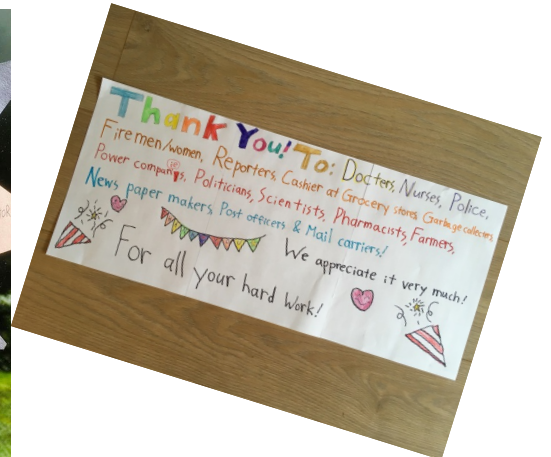 Thank You! To: Docters, Nurses, Police,
Firemen/women, Reporters, Cashier at Grocery stores Garbage collecters
Power companys, Politicians, Scientists, Pharmacists, Farmers,
News paper makers, Post officers & Mail carriers!
We appreciate it very much!
For all your hard work!